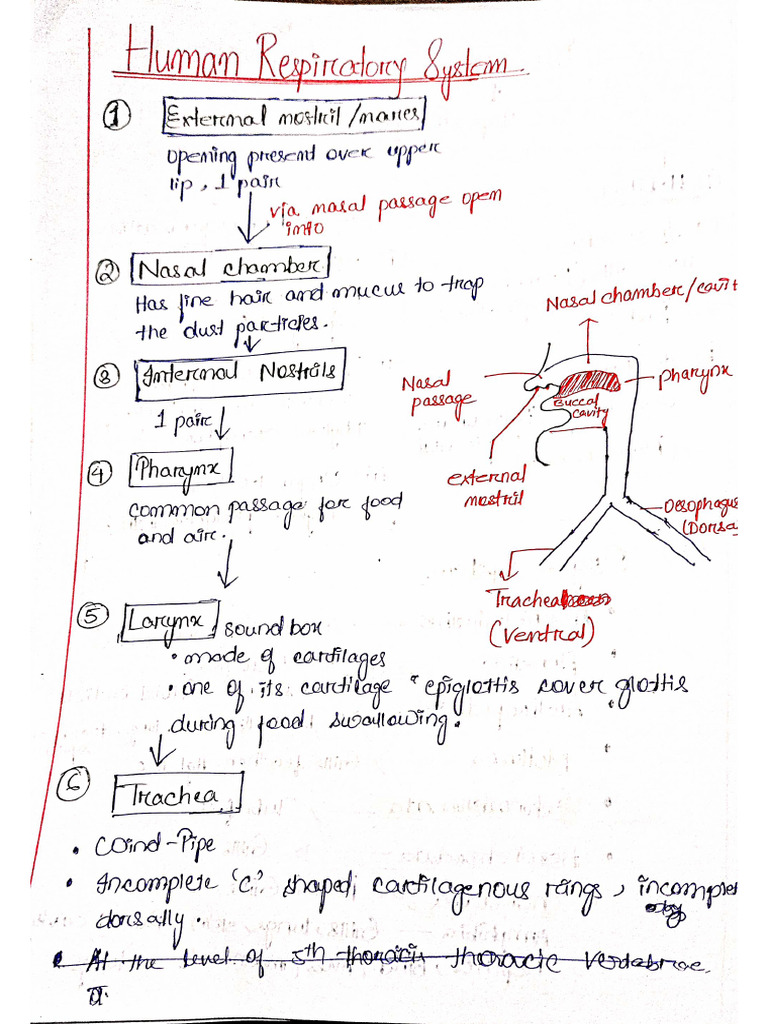 Human Respiratory System
① External nostril/nares
opening present over upper
lip, 1 pair
via nasal passage open
into
② Nasal chamber
Has fine hair and mucus to trap
the dust particles.
③ Internal Nostrils
1 pair
④ Pharynx
Common passage for food
and air.
⑤ Larynx sound box
• made of cartilages
• one of its cartilage " epiglottis cover glottis
during food swallowing.
⑥ Trachea
• Wind-Pipe
• Incomplete 'C' shaped, cartilagenous rings, incomplet
dorsally.
• At the level of 5th thoracic vertebrae.
Nasal chamber/cavit
Nasal
passage
Pharynx
Buccal
cavity
external
nostril
Oesophagus
(Dorsa
Trachea
(Ventral)